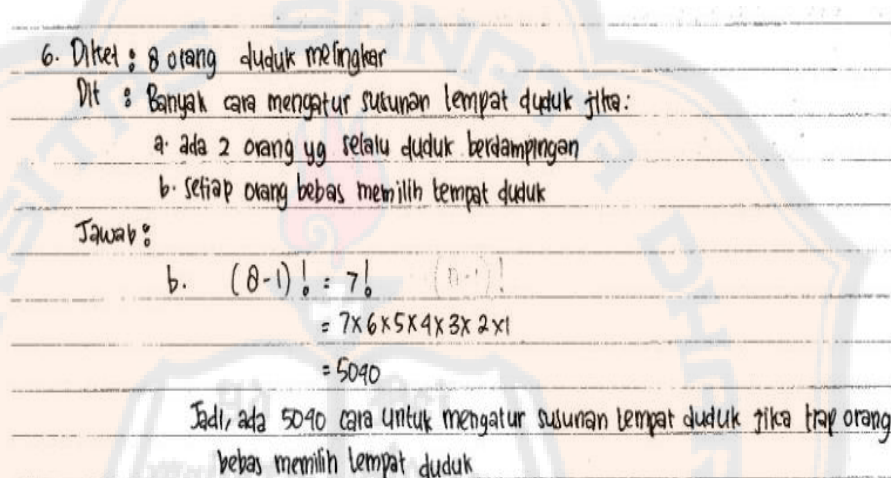 6. Diket : 8 orang duduk melingkar
Dit : Banyak cara mengatur susunan tempat duduk jika :
a. ada 2 orang yg selalu duduk berdampingan
b. setiap orang bebas memilih tempat duduk
Jawab :
b. (8-1)! = 7! (n-1)!
= 7x6x5x4x3x2x1
= 5040
Jadi, ada 5040 cara untuk mengatur susunan tempat duduk jika tiap orang
bebas memilih tempat duduk